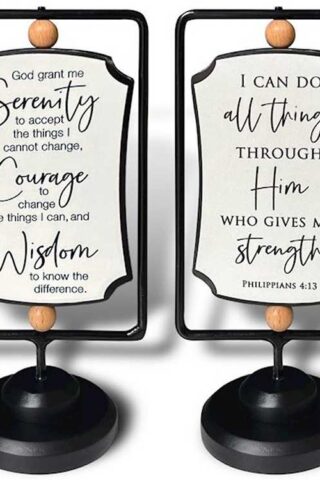 God grant me
Serenity
to accept
the things I
cannot change,
Courage
to
change
e things I can, and
Wisdom
to know the
difference.
I CAN DO
all thing
THROUGH
Him
WHO GIVES M
strength
PHILIPPIANS 4:13